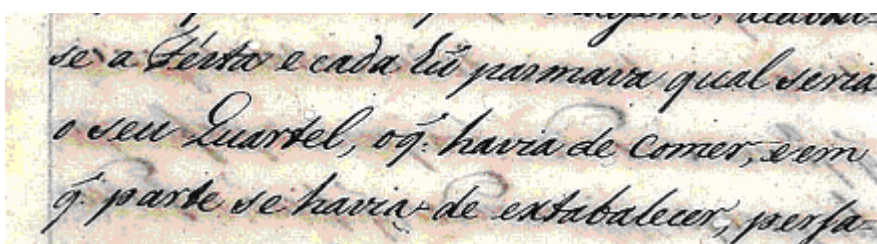 se a Fésta e cada hũ pasmava qual seria
o seu Quartel, oq̃: havia de comer, e em
q̃ parte se havia de extabalecer, persa-